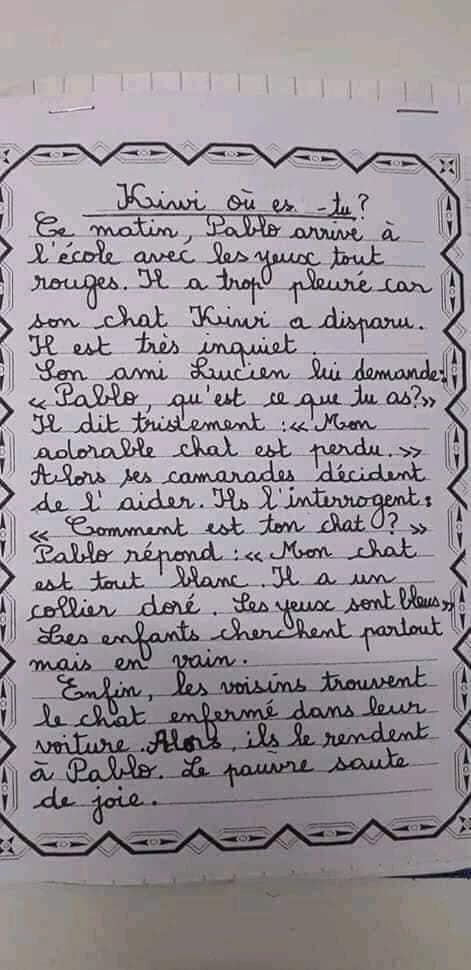 Kiwi où es -tu?
Ce matin, Pablo arrive à
l'école avec les yeux tout
rouges. Il a trop pleuré car
son chat Kiwi a disparu.
Il est très inquiet.
Son ami Lucien lui demande:
« Pablo, qu'est ce que tu as?»
Il dit tristement :« Mon
adorable chat est perdu.»
Alors ses camarades décident
de l'aider. Ils l'interrogent:
« Comment est ton chat ? »
Pablo répond :« Mon chat
est tout blanc. Il a un
collier doré. Ses yeux sont bleus»
Les enfants cherchent partout
mais en vain.
Enfin, les voisins trouvent
le chat enfermé dans leur
voiture. Alors, ils le rendent
à Pablo. Le pauvre saute
de joie.